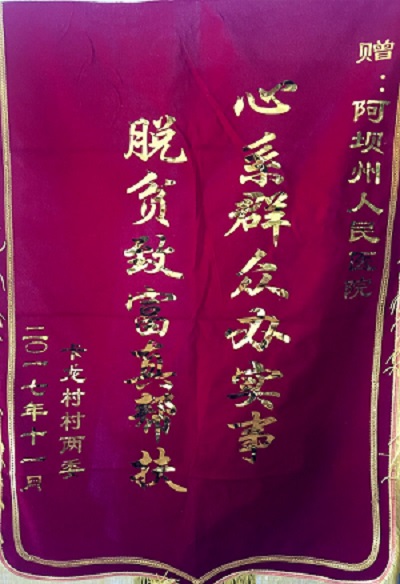 赠：阿坝州人民医院
心系群众办实事
脱贫致富真帮扶
卡龙村村两委
二〇一七年十一月